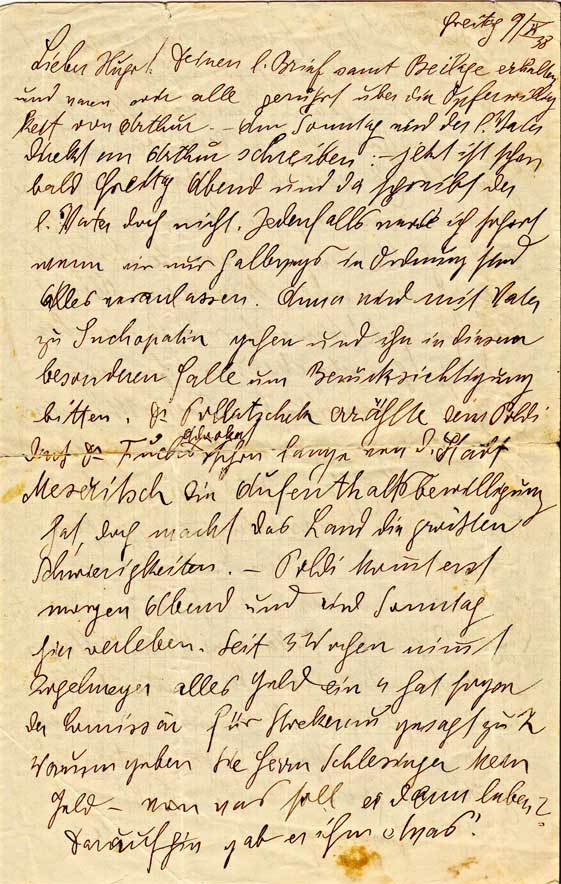 Freitg 9/IX 38
Lieber Hugo! Deinen l. Brief samt Beilage erhalten
und waren alle gerührt über die Opferwillig
keit von Arthur. – Am Sonntag wird der l. Vater
direkt an Arthur schreiben. – jetzt ist schon
bald Freitg Abend und da schreibt der
l. Vater doch nicht. Jedenfalls werde ich sofort
wenn wir nur halbwegs in Ordnung sind
Alles veranlassen. Anna wird mit Vater
zu Suchopatin gehen und ihn in diesem
besonderen Falle um Berücksichtigung
bitten. Dr Pollatschek erzählte dem Poldi
dass Dr Fuchs Advokat schon lange von d. Stadt
Meseritsch die Aufenthaltsbewilligung
hat, doch macht das Land die grössten
Schwierigkeiten. – Poldi kommt erst
morgen Abend und wird Sonntag
hier verleben. Seit 3 Wochen nimmt
alles Geld ein u hat sogar
der Comissär für gesagt zu K
Warum geben Sie Herrn Schlesinger kein
Geld – von was soll er denn leben?
Daraufhin gab er ihm etwas!